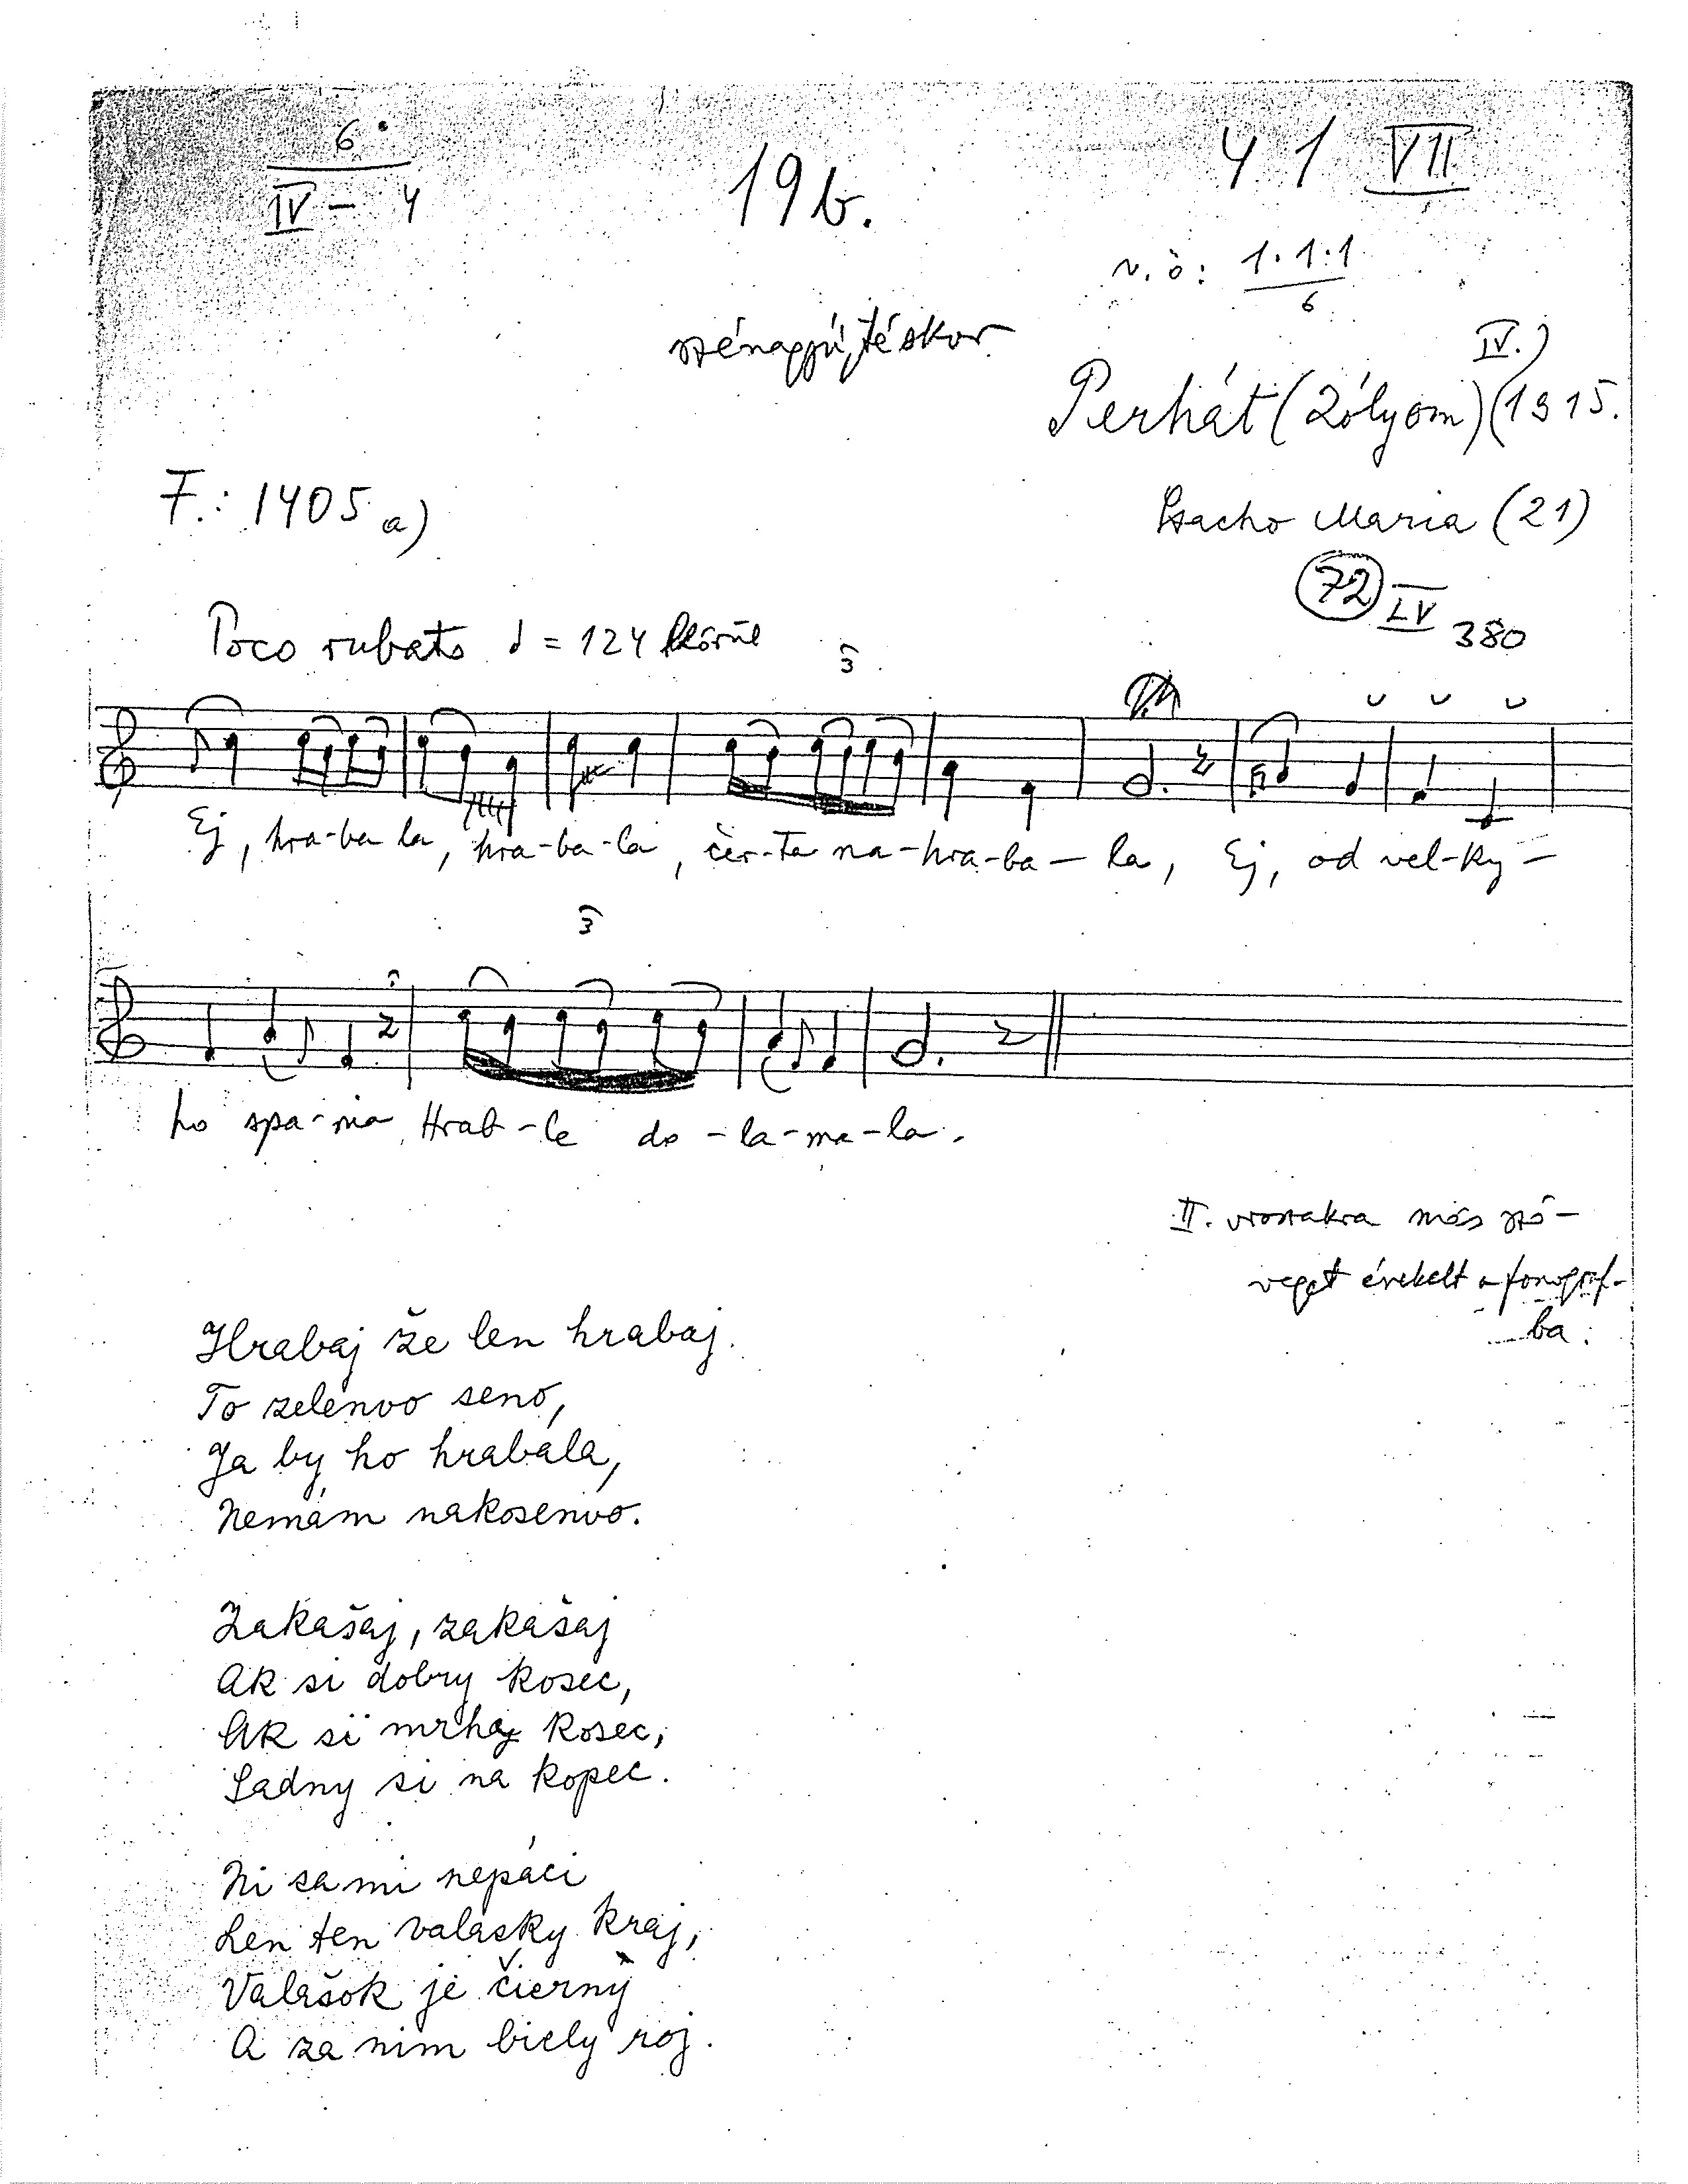 6
IV - 4
19b.
41 VII
v. ö: 1·1:1
6
szénagyűjtéskor
IV.)
Perhát (Zólyom) (1915.
F.: 1405 a)
Maria (21)
72 IV 380
Poco rubato = 124
3
Ej, hra-ba la, hra-ba-la, čer-ta na-hra-ba-la, Ej, od vel-ky-
3
ho spa-nia Hrab-le do-la-ma-la.
II. más szö-
veget énekelt a fonográf-
ba.
Hrabaj že len hrabaj.
To zelenvo seno,
Ja by ho hrabala,
Nemám nakosenvo.
Zakašaj, zakašaj
Ak si dobry kosec,
Ak si mrhy kosec,
Sadny si na kopec.
Ni sa mi nepáci
Len ten valasky kraj,
Valašok je čierny
A za nim biely roj.